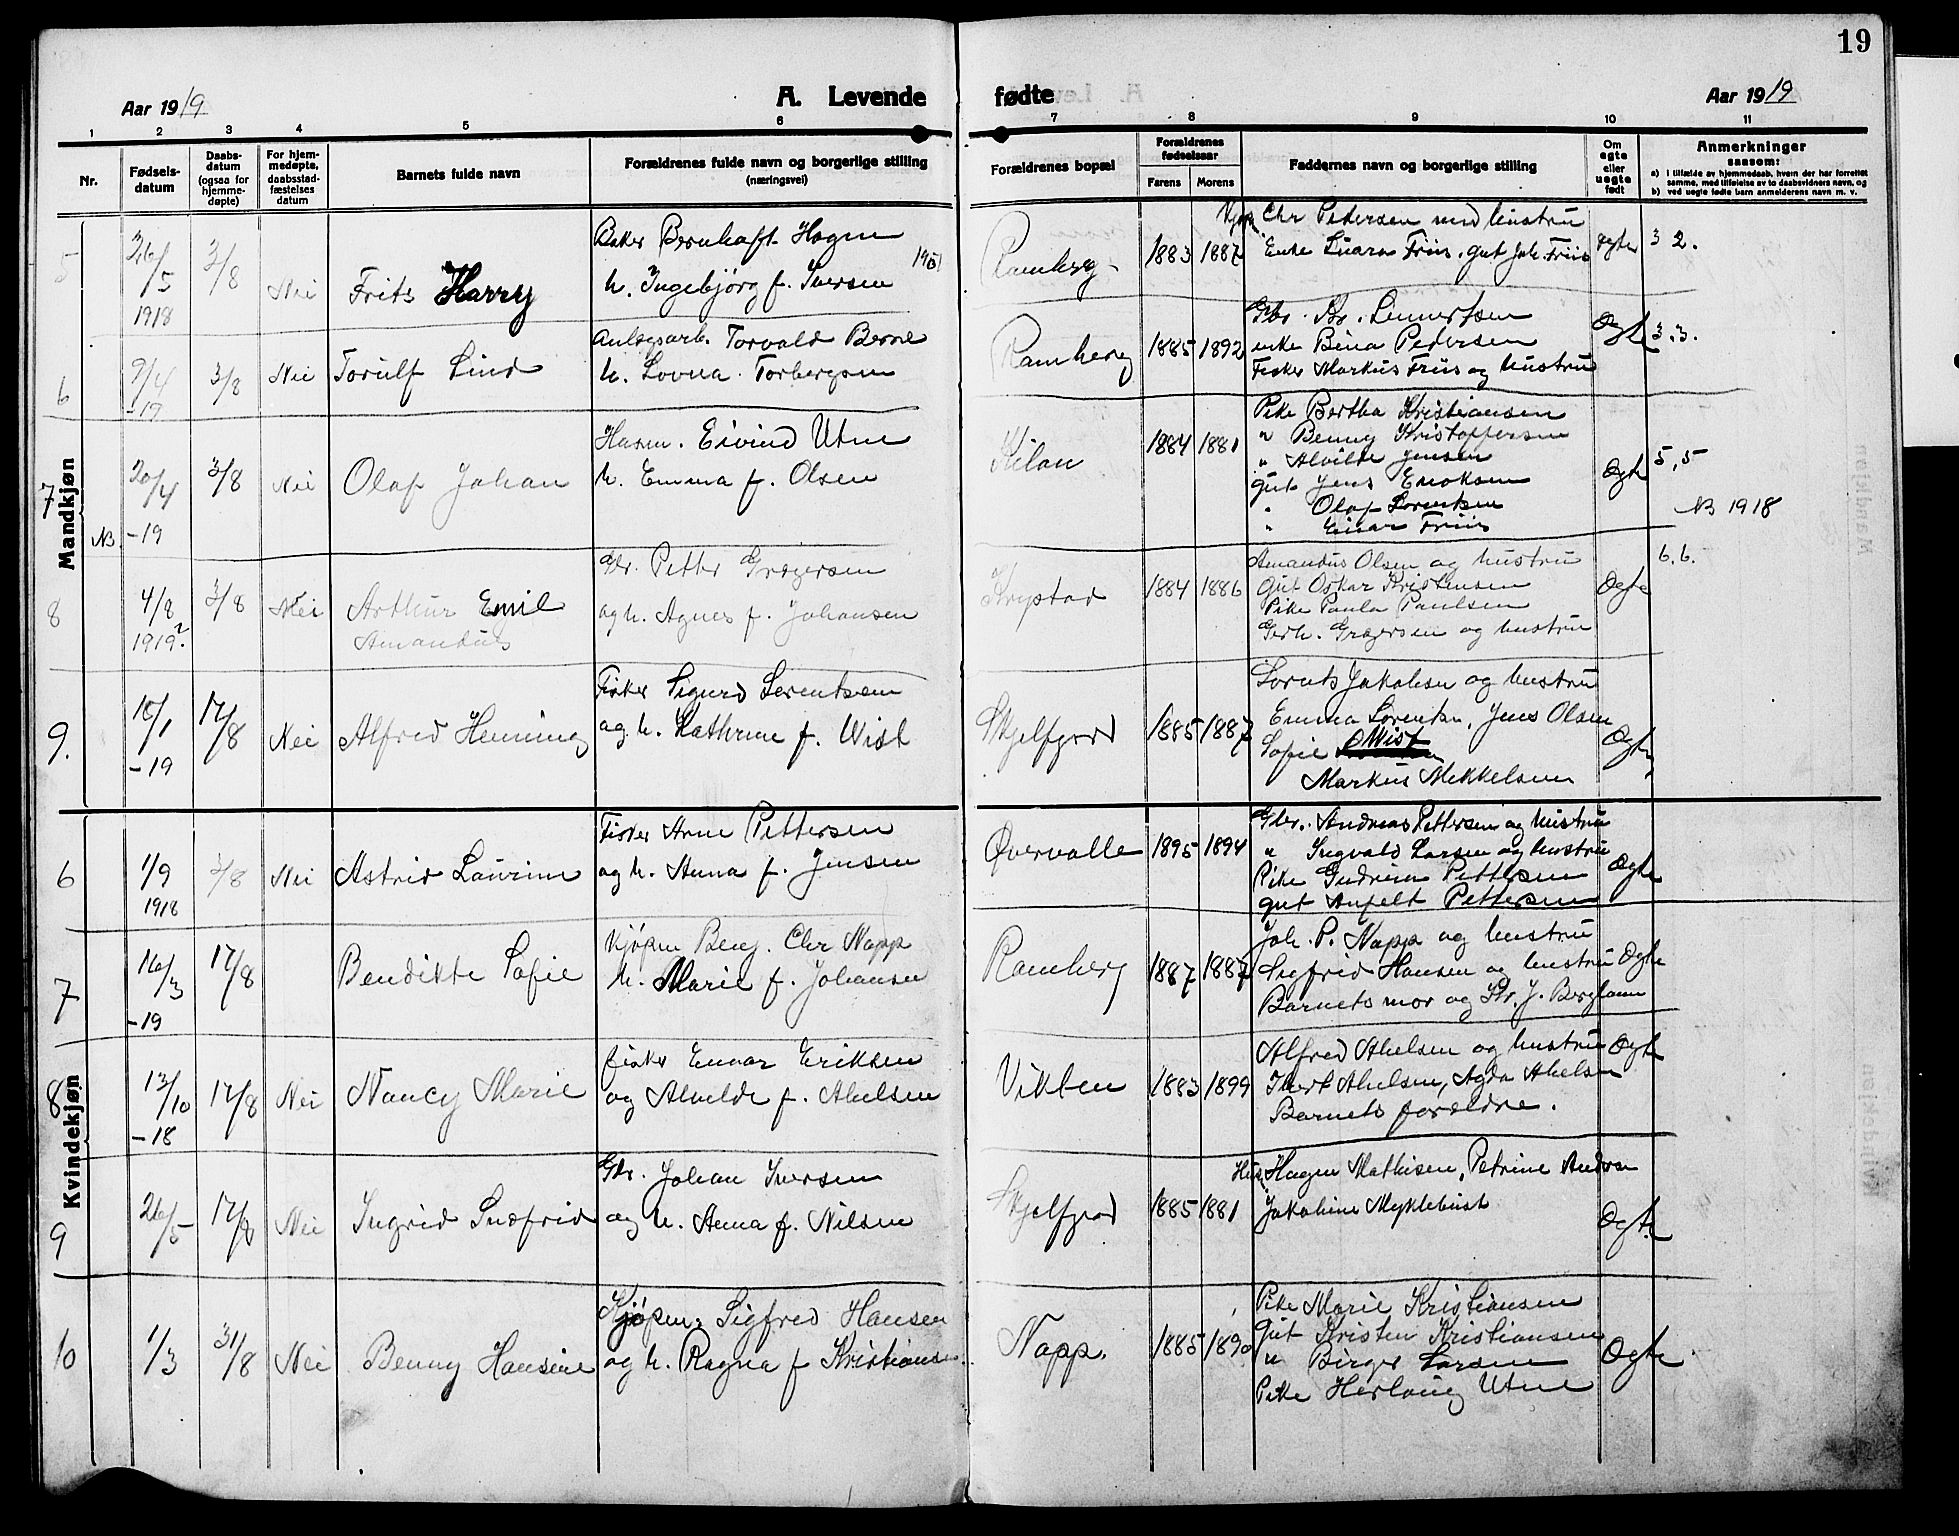 19
Aar 1919
A. Levende fødte
Aar 1919
1 2 3 4 5 6 7 8 9 10 11
Nr.
Fødsels-
datum
Daabs-
datum
(ogsaa for
hjemme-
døpte)
For hjem-
medøpte,
daabsstad-
fæstelses
datum
Barnets fulde navn
Forældrenes fulde navn og borgerlige stilling
(næringsvei)
Forældrenes bopæl
Forældrenes
fødselsaar
Farens Morens
Faddernes navn og borgerlige stilling
Om
egte
eller
uegte
født
Anmerkninger
saasom:
a) i tilfælde av hjemmedaab, hvem der har forrettet
samme, med tilføielse av to daabsvidners navn, og
b) ved uegte fødte barn anmelderens navn m. v.
Mandkjøn
5 26/5 1918 3/8 Nei Frits Harry
Baker Bernhoft Hagen
h. Ingebjørg f. Iversen
Ramberg 1883 1887
Chr Pedersen med hustru
Enke Luara Friis, gut Joh. Friis
Ægte 3 2.
6 9/4 -19 3/8 Nei Torulf Lind
Anlegsarb. Torvald Berne
h. Lovna Torbergsen
Ramberg 1885 1892
Gbr. Kr. Lennertsen
enke Bina Pedersen
Fisker Markus Friis og hustru
Ægte 3.3.
7 NB 20/4 -19 3/8 Nei Olaf Johan
Havn. Eivind Utne
h. Emma f. Olsen
Kilan 1884 1881
Pike Bertha Kristiansen
" Benny Kristoffersen
" Alvilde Jensen
gut Jens Eriksen
" Olaf Lorentsen
" Einar Friis
Ægte 5,5
NB 1918
8 4/8 1919? 3/8 Nei Arthur Emil
Amandus
Gbr. Petter Gregersen
og h. Agnes f. Johansen
Krystad 1884 1886
Amandus Olsen og hustru
Gut Oskar Kristensen
Pike Paula Paulsen
Gerh. Gregersen og hustru
Ægte 6.6.
9. 10/1 -19 17/8 Nei Alfred Henning
Fisker Sigurd Lorentsen
og h. Kathrine f. Wist
Skjelfjord 1885 1887
Lorents Jakobsen og hustru
Emma Lorentsn, Jens Olsen
Sofie Wist
Markus Mikkelsen
Ægte
Kvindekjøn
6 1/9 1918 3/8 Nei Astrid Laurine
Fisker Arne Pettersen
og h. Anna f. Jensen
Øvervolle 1895 1894
Gbr. Andreas Pettersen og hustru
" Ingvald Larsen og hustru
Pike Gudrun Pettersen
gut Anfelt Pettersen
Ægte
7 16/3 -19 17/8 Bendikte Sofie
Kjøpm Benj. Chr Napp
h. Marie f. Johansen
Ramberg 1887 1887
Joh. P. Napp og hustru
Sigfrid Hansen og hustru
Barnets mor og Kr. J. Bergland
Ægte
8 13/10 -18 17/8 Nei Nancy Marie
fisker Einar Eriksen
og Alvilde f. Abelsen
Vikten 1883 1899
Alfred Abelsen og hustru
Ibert Abelsen, Agda Abelsen
Barnets forældre.
Ægte
9 26/5 17/8 Nei Ingrid Snefrid
Gbr. Johan Iversen
og h. Anna f. Nilsen
Skjelfjord 1885 1881
Hagen Mathisen, Petrine Andrsen
Jakobine Myklebust
Ægte
10 1/3 31/8 Nei Benny Hansine
Kjøpm. Sigfred Hansen
og h. Ragna f Kristiansen
Napp. 1885 1890
Pike Marie Kristiansen
Gut Kristen Kristiansen
" Birger Larsen
Pike Herlaug Utne
Ægte